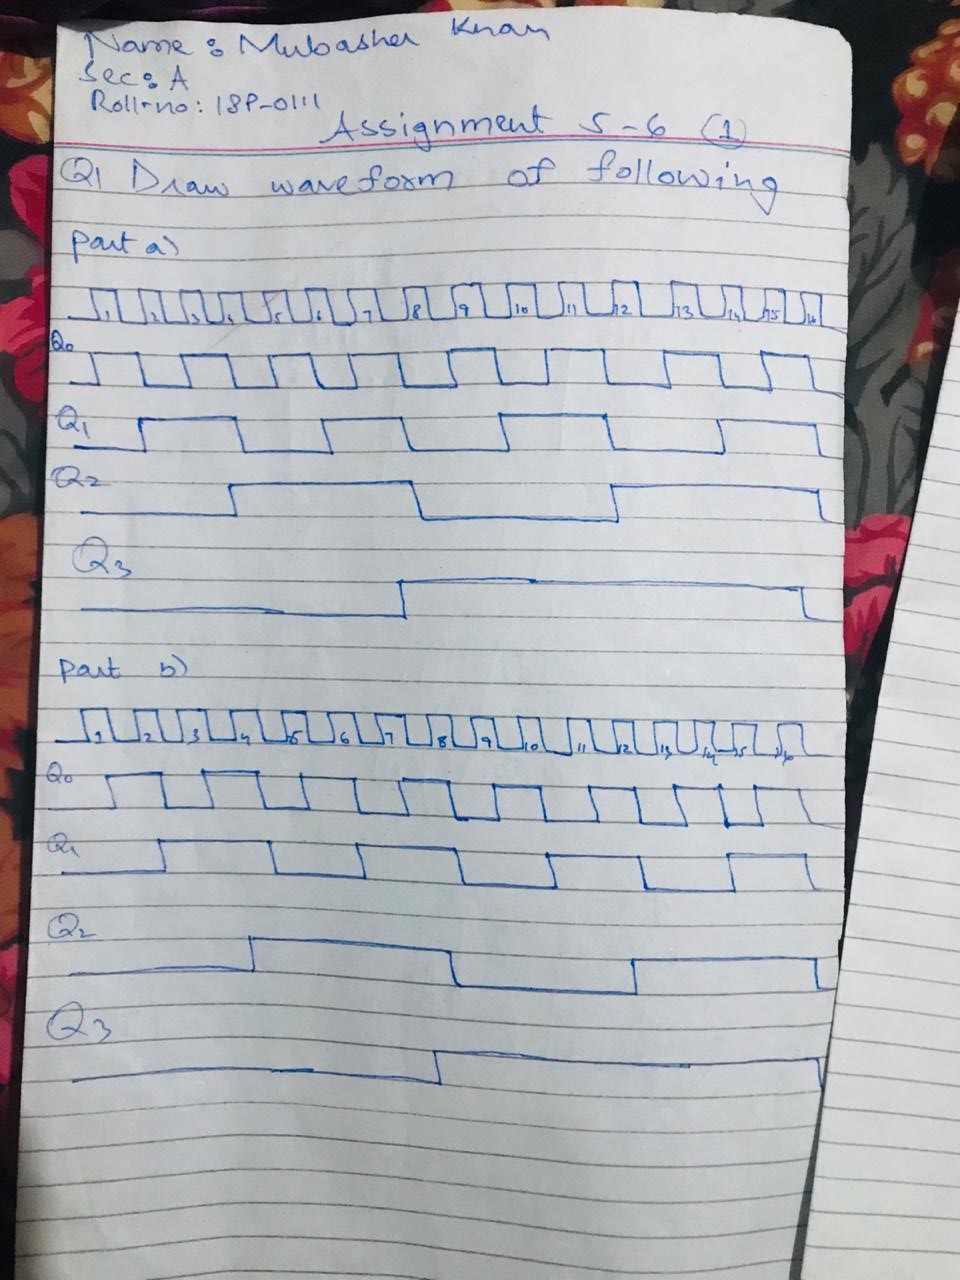 Name : Mubasher Khan
Sec: A
Roll-no: 18P-0111
Assignment 5-6 (1)
Q1 Draw waveform of following
part a)
1 2 3 4 5 6 7 8 9 10 11 12 13 14 15 16
Q0
Q1
Q2
Q3
part b)
1 2 3 4 5 6 7 8 9 10 11 12 13 14 15 16
Q0
Q1
Q2
Q3